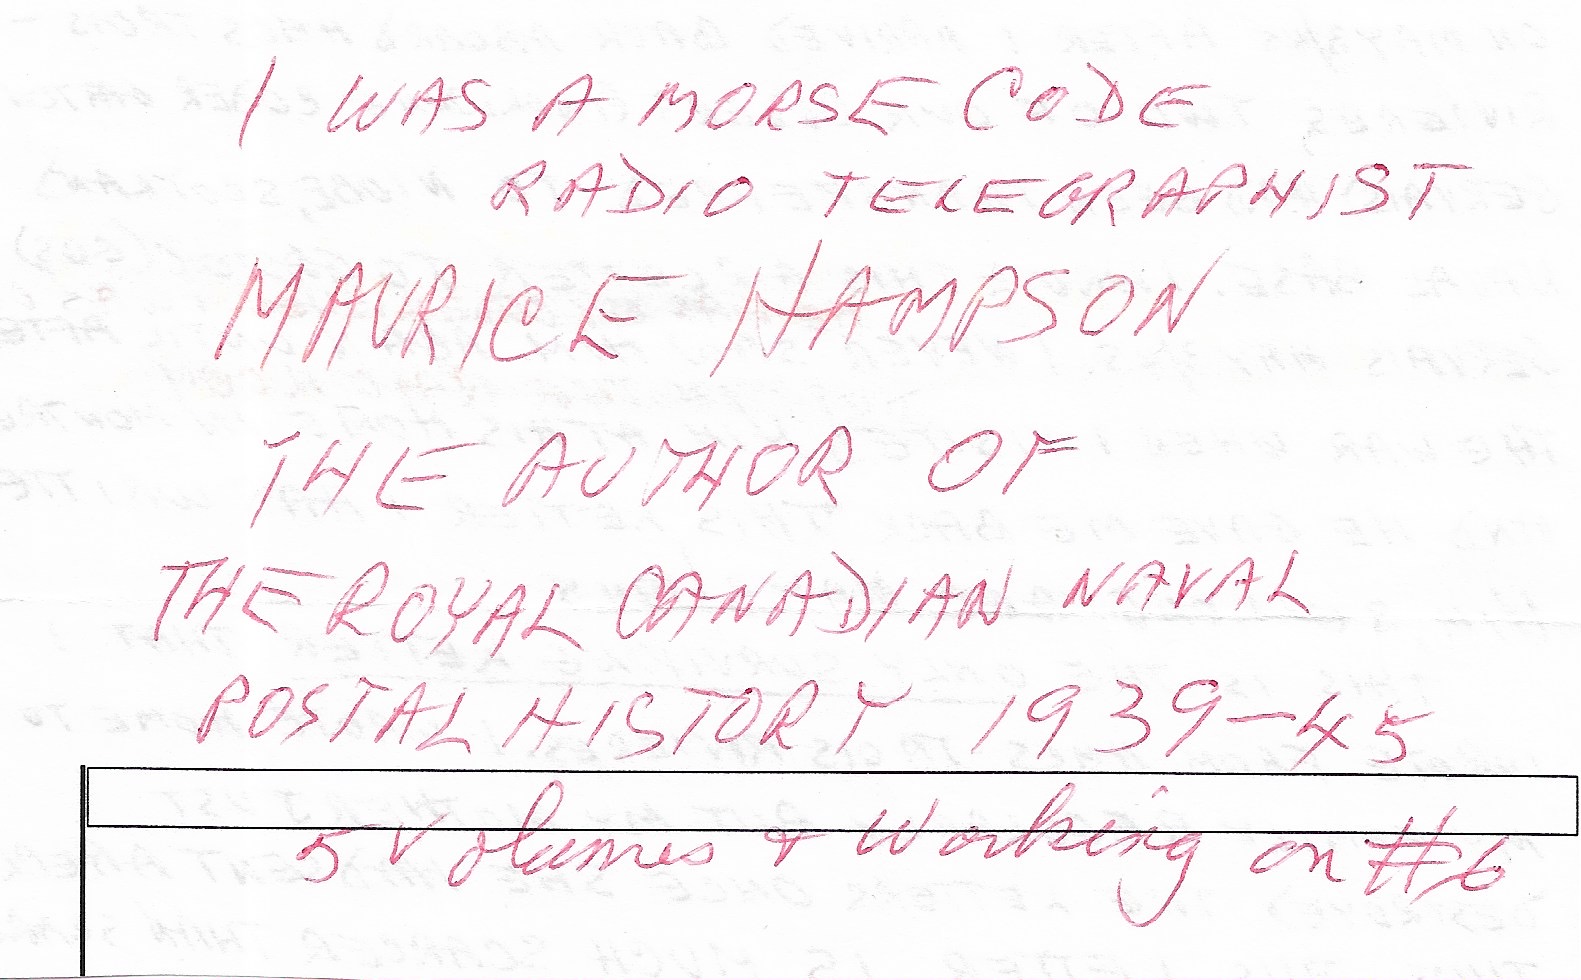 I WAS A MORSE CODE
RADIO TELEGRAPHIST
MAURICE HAMPSON
THE AUTHOR OF
THE ROYAL CANADIAN NAVAL
POSTAL HISTORY 1939-45
5 Volumes + Working on #6